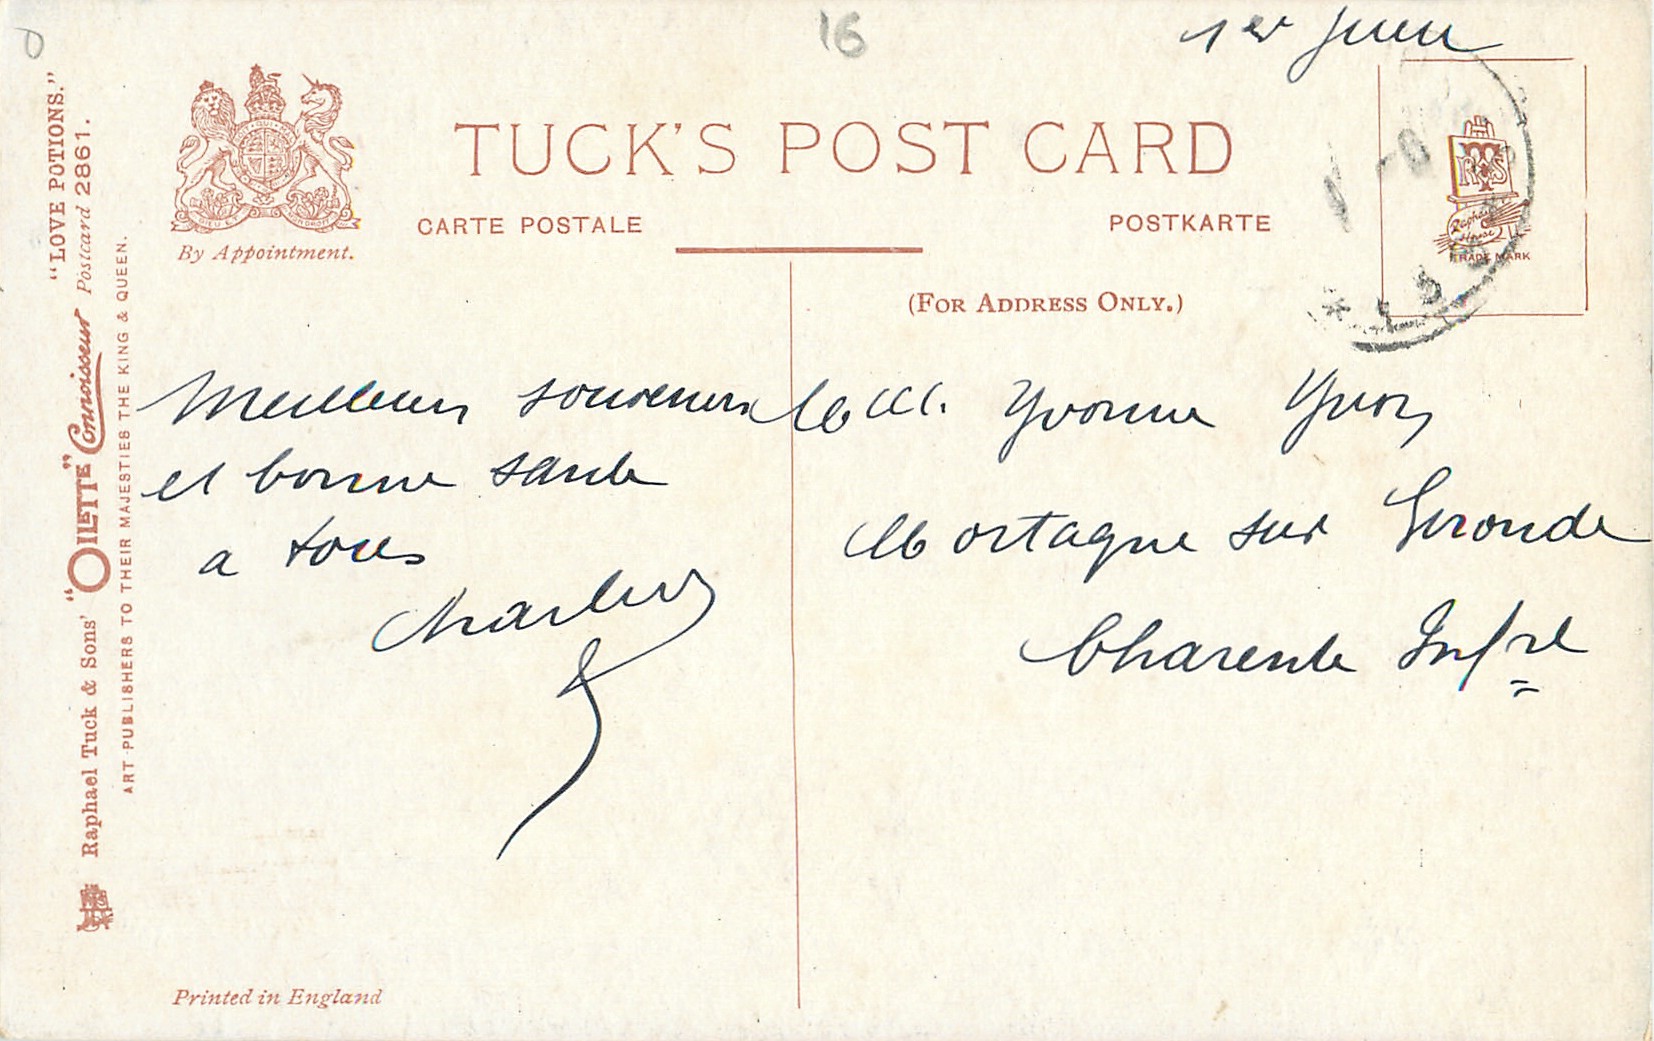 16
1er Juin
TUCK'S POST CARD
CARTE POSTALE
POSTKARTE
By Appointment.
(FOR ADDRESS ONLY.)
RTS
Raphael
House
TRADE MARK
"LOVE POTIONS."
Raphael Tuck & Sons' "OILETTE" Connoisseur Postcard 2861.
ART PUBLISHERS TO THEIR MAJESTIES THE KING & QUEEN.
Meilleurs souvenirs
et bonne sante
a tous
Charles
Melle. Yvonne Yvon
Mortagne sur Gironde
Charente Infre
Printed in England